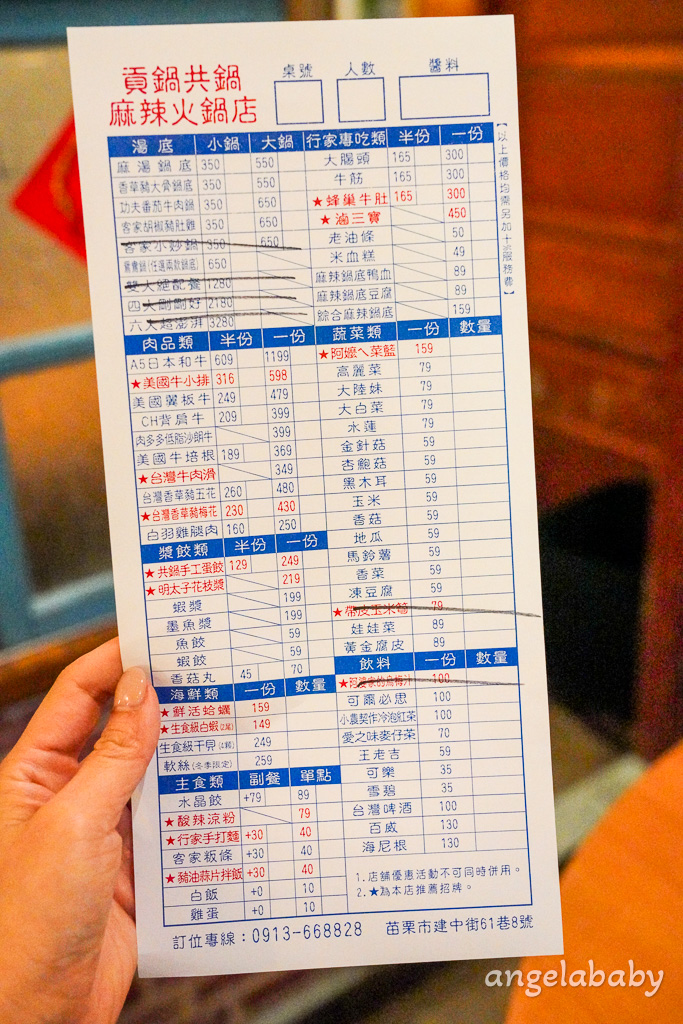 貢鍋共鍋
麻辣火鍋店
桌號 人數 醬料
湯底 小鍋 大鍋
麻湯鍋底 350 550
香草豬大骨鍋底 350 550
功夫番茄牛肉鍋 350 650
客家胡椒豬肚雞 350 650
客家小炒鍋 350 650
鴛鴦鍋(任選兩款鍋底) 650
雙人總配餐 1280
四人剛剛好 2180
六人超澎湃 3280
肉品類 半份 一份
A5日本和牛 609 1199
★美國牛小排 316 598
美國翼板牛 249 479
CH背肩牛 209 399
肉多多低脂沙朗牛 399
美國牛培根 189 369
★台灣牛肉滑 349
台灣香草豬五花 260 480
★台灣香草豬梅花 230 430
白羽雞腿肉 160 250
漿餃類 半份 一份
★共鍋手工蛋餃 129 249
★明太子花枝漿 219
蝦漿 199
墨魚漿 199
魚餃 59
蝦餃 59
香菇丸 45 70
海鮮類 一份 數量
★鮮活蛤蠣 159
★生食級白蝦(2尾) 149
生食級干貝 249
軟絲(冬季限定) 259
主食類 副餐 單點
水晶餃 +79 89
★酸辣涼粉 79
★行家手打麵 +30 40
客家粄條 +30 40
★豬油蒜片拌飯 +30 40
白飯 +0 10
雞蛋 +0 10
行家專吃類 半份 一份
大腸頭 165 300
牛筋 165 300
★蜂巢牛肚 165 300
★滷三寶 450
老油條 50
米血糕 49
麻辣鍋底鴨血 89
麻辣鍋底豆腐 89
綜合麻辣鍋底 159
蔬菜類 一份 數量
★阿嬤ㄟ菜籃 159
高麗菜 79
大陸妹 79
大白菜 79
水蓮 79
金針菇 59
杏鮑菇 59
黑木耳 59
玉米 59
香菇 59
地瓜 59
馬鈴薯 59
香菜 59
凍豆腐 59
★帶皮玉米筍 79
娃娃菜 89
黃金腐皮 89
飲料 一份 數量
★阿婆家的烏梅汁 100
可爾必思 100
小農契作冷泡紅茶 100
愛之味麥仔茶 70
王老吉 59
可樂 35
雪碧 35
台灣啤酒 100
百威 130
海尼根 130
1.店鋪優惠活動不可同時併用。
2.★為本店推薦招牌。
【以上價格均需另加十%服務費】
訂位專線：0913-668828 苗栗市建中街61巷8號
angelababy